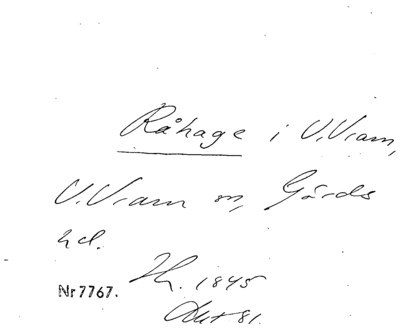 Råhage i V. Vram,
V. Vram sn, Gärds
hd.
Nr 7767.
1845
81.